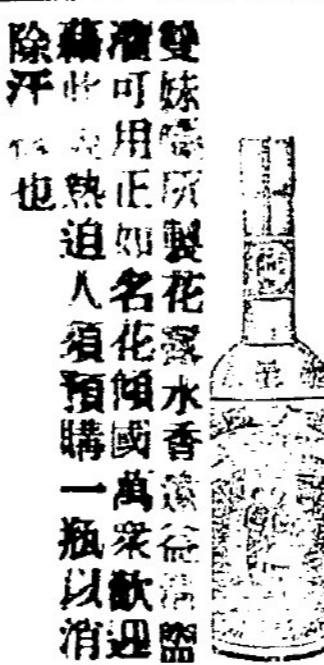 雙妹所製花露水香遠益清盥
濯可用正如名花傾國萬衆歡迎
此熱迫人須預購一瓶以消
除汗也